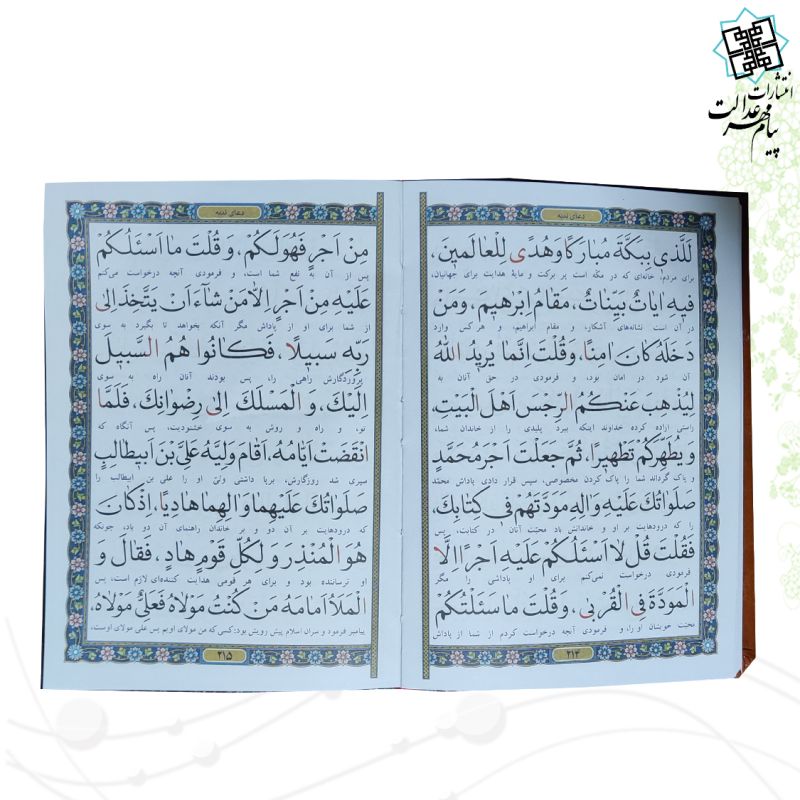 انتشارات
پیام مهر عدالت
دعای ندبه
لَلَّذی بِبَکَّةَ مُبارَکًا وَ هُدًی لِلْعالَمینَ،
برای مردم: خانه‌ای که در مکّه است پر برکت و مایهٔ هدایت برای جهانیان،
فیهِ ایاتٌ بَیِّناتٌ، مَقامُ اِبْرهیمَ، وَمَنْ
در آن است نشانه‌های آشکار، و مقام ابراهیم، و هر کس وارد
دَخَلَهُ کانَ امِنًا، وَقُلْتَ اِنَّما یُریدُ اللهُ
آن شود در امان بود، و فرمودی در حق آنان به
لِیُذْهِبَ عَنْکُمُ الرِّجْسَ اَهْلَ الْبَیْتِ،
راستی اراده کرده خداوند اینکه ببرد پلیدی را از خاندان شما،
وَ یُطَهِّرَکُمْ تَطْهیرًا، ثُمَّ جَعَلْتَ اَجْرَ مُحَمَّدٍ
و پاک گرداند شما را پاک کردن مخصوصی، سپس قرار دادی پاداش محمّد
صَلَواتُکَ عَلَیْهِ وَ الِهِ مَوَدَّتَهُمْ فی کِتابِکَ،
را که درودهایت بر او و خاندانش باد محبّت آنان در کتابت، پس
فَقُلْتَ قُلْ لا اَسْئَلُکُمْ عَلَیْهِ اَجْرًا اِلَّا
فرمودی درخواست نمی‌کنم برای او پاداشی را مگر
الْمَوَدَّةَ فِی الْقُرْبی، وَ قُلْتَ ما سَئَلْتُکُمْ
محبّت خویشان او را، و فرمودی آنچه درخواست کردم از شما از پاداش
۲۱۴
دعای ندبه
مِنْ اَجْرٍ فَهُوَلَکُمْ، وَ قُلْتَ ما اَسْئَلُکُمْ
پس از آن به نفع شما است، و فرمودی آنچه درخواست می‌کنم
عَلَیْهِ مِنْ اَجْرٍ اِلّا مَنْ شآءَ اَنْ یَتَّخِذَ اِلی
از شما برای او از پاداش مگر آنکه بخواهد تا بگیرد به سوی
رَبِّهِ سَبیلًا، فَکانُوا هُمُ السَّبیلَ
پروردگارش راهی را، پس بودند آنان راه به سوی
اِلَیْکَ، وَ الْمَسْلَکَ اِلی رِضْوانِکَ، فَلَمَّا
تو، و راه و روش به سوی خشنودیت، پس آنگاه که
انْقَضَتْ اَیّامُهُ، اَقامَ وَلِیَّهُ عَلِیَّ بْنَ اَبیطالِبٍ
سپری شد روزگارش، برپا داشتی ولیّ او را علی بن ابیطالب را
صَلَواتُکَ عَلَیْهِما وَ الِهِما هادِیًا، اِذْ کانَ
که درودهایت بر آن دو و بر خاندان راهنمای آن دو باد، چونکه
هُوَ الْمُنْذِرَ وَ لِکُلِّ قَوْمٍ هادٍ، فَقالَ وَ
او ترساننده بود و برای هر قومی هدایت کننده‌ای لازم است، پس
الْمَلَأُ اَمامَهُ مَنْ کُنْتُ مَوْلاهُ فَعَلِیٌّ مَوْلاهُ،
پیامبر فرمود و سران اسلام پیش رویش بود: کسی که من مولای اویم پس علی مولای اوست،
۲۱۵